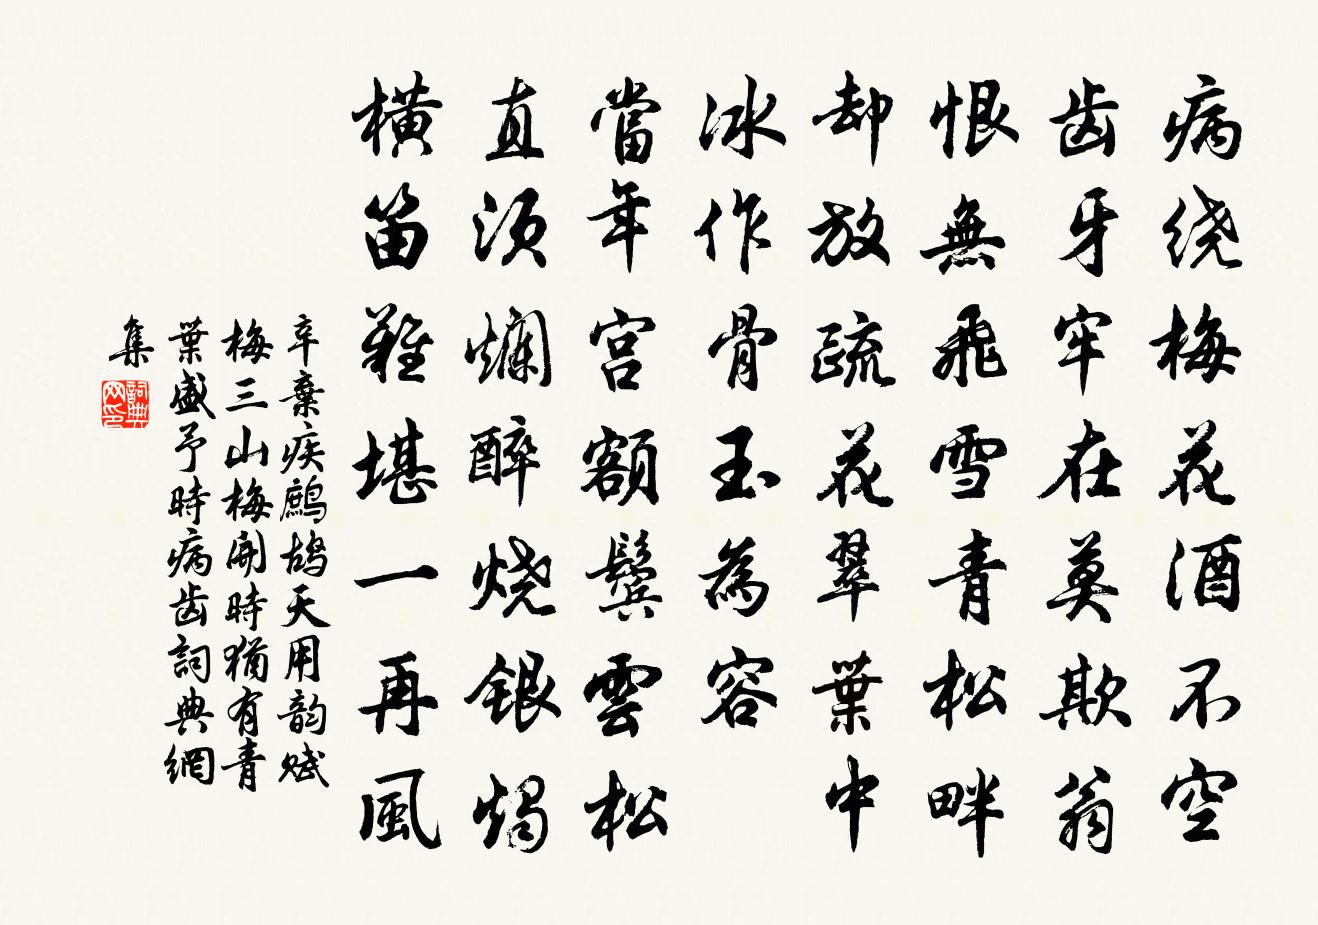 病绕梅花酒不空
齿牙牢在莫欺翁
恨無飛雪青松畔
却放疏花翠葉中
冰作骨玉為容
當年宫额鬓雲松
直须爛醉烧银燭
橫笛難堪一再風
辛棄疾鷓鸪天用韵赋
梅三山梅開時猶有青
葉盛予時病齿詞典網
集
詞典网印